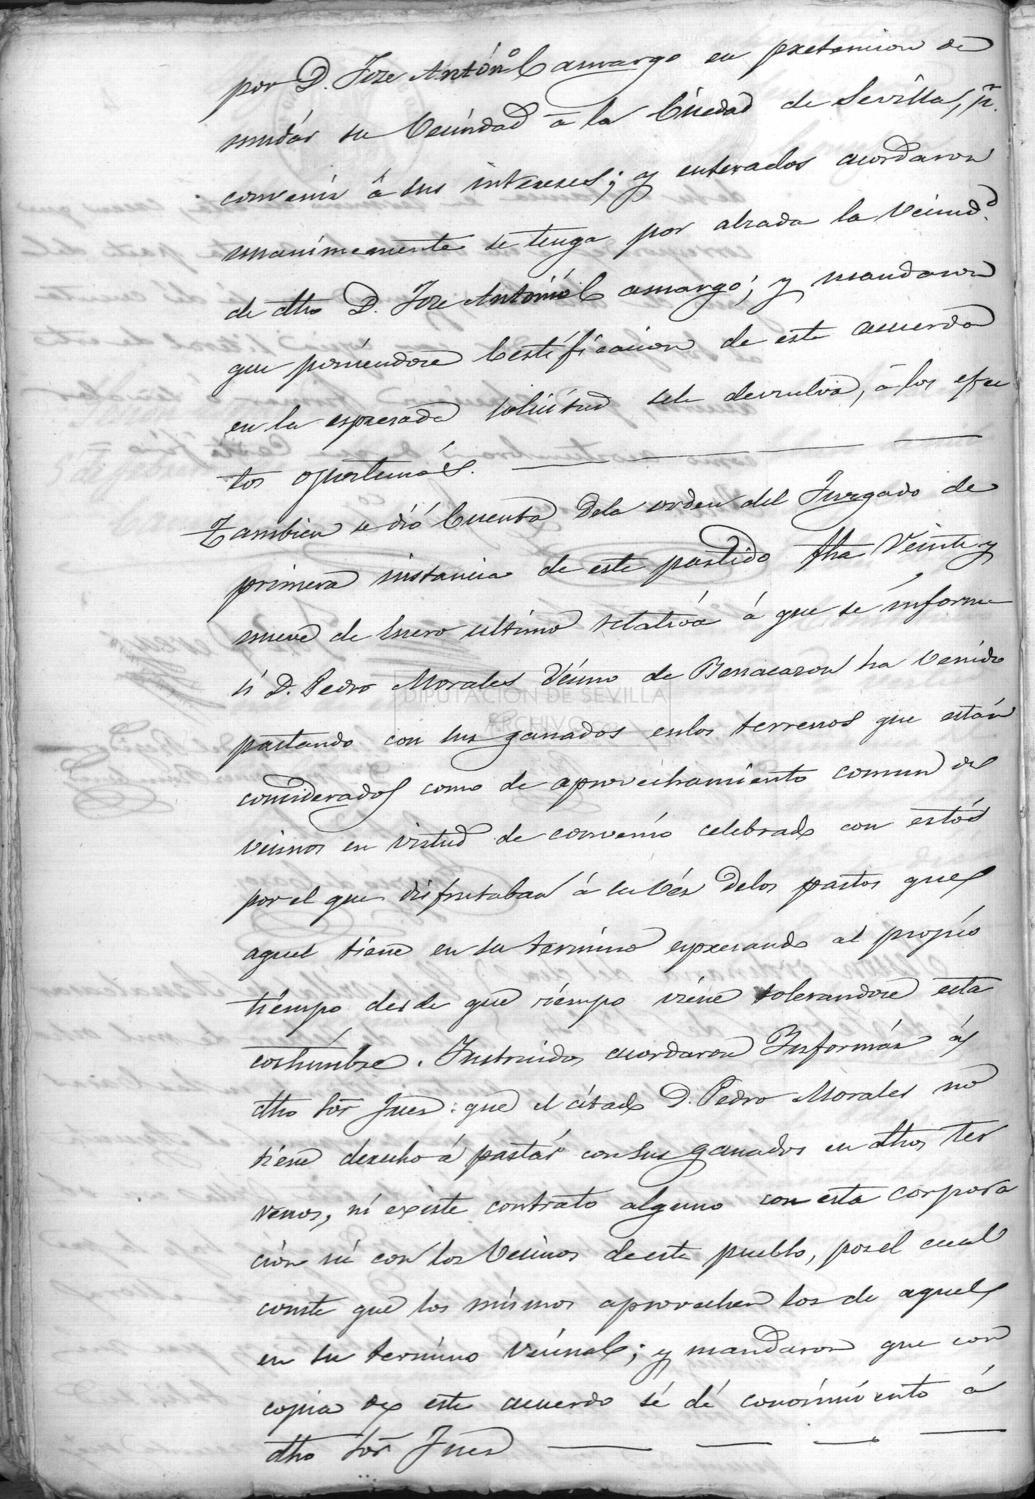 por D. Jose Antónº Camargo en pretencion de
mudár su Vecindad á la Ciudad de Sevilla, pª.
convenir á sus intereses; y enterados acordaron
unanimemente se tenga por alzada la Vecindd.
de dho D. Jose António Camargo; y mandaron
que poniendose Certificacion de este acuerdo
en la espresada solicitud sele devuelva, á los efec
tos oportunos.
Tambien se dió Cuenta dela orden del Juzgado de
primera instancia de este partido fha Veinte y
nueve de Enero ultimo relativa á que se informe
si D. Pedro Morales Vecino de Benacazon ha venido
pastando con sus ganados enlos terrenos que están
considerados como de aprovechamiento comun de
vecinos en virtud de convenio celebrado con estós
por el que disfrutaban á su véz delos pastos que
aquel tiene en su termino expresando al propio
tiempo desde que tiempo viene tolerandose esta
costumbre. Instruidos acordaron Informár á
dho Sor Juez: que el citado D. Pedro Morales no
tiene derecho á pastár con sus ganados en dhos ter
renos, ni existe contrato alguno con esta corpora
ción ni con los Vecinos deeste pueblo, por el cual
conste que los mismos aprovechen los de aquel
en su termino vecinal; y mandaron que con
copia de este acuerdo sé dé conocimiento á
dho Sor Juez
DIPUTACIÓN DE SEVILLA
ARCHIVO